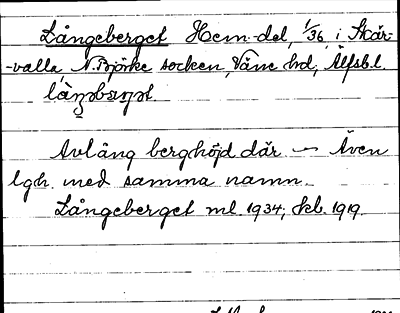 Långeberget Hem.-del, 1/36, i Skår-
-valla, N. Björke socken, Väne hd, Älfsb. l.
Avlång berghöjd där — Även
lgh. med samma namn.
Långeberget ml. 1934; skb. 1919.